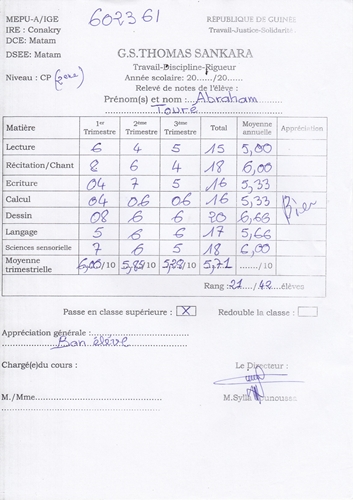 MEPU-A/IGE 602361 REPUBLIQUE DE GUINEE
IRE : Conakry Travail-Justice-Solidarité
DCE: Matam
DSEE: Matam G.S.THOMAS SANKARA
Travail-Discipline-Rigueur
Niveau : CP Année scolaire: 20....../20......
Relevé de notes de l'élève :
Prénom(s) et nom : Abraham
Touré
Matière 1er Trimestre 2ème Trimestre 3ème Trimestre Total Moyenne annuelle Appréciation
Lecture 6 4 5 15 5,00
Récitation/Chant 8 6 4 18 6,00
Ecriture 04 7 5 16 5,33
Calcul 04 06 06 16 5,33 Bien
Dessin 08 6 6 20 6,66
Langage 5 6 6 17 5,66
Sciences sensorielle 7 6 5 18 6,00
Moyenne trimestrielle 6,00/10 /10 /10 5,71 ......../10
Rang : 21 / 42 élèves
Passe en classe supérieure : X Redouble la classe :
Appréciation générale :
Bon élève
Chargé(e)du cours : Le Directeur :
M./Mme M.Sylla